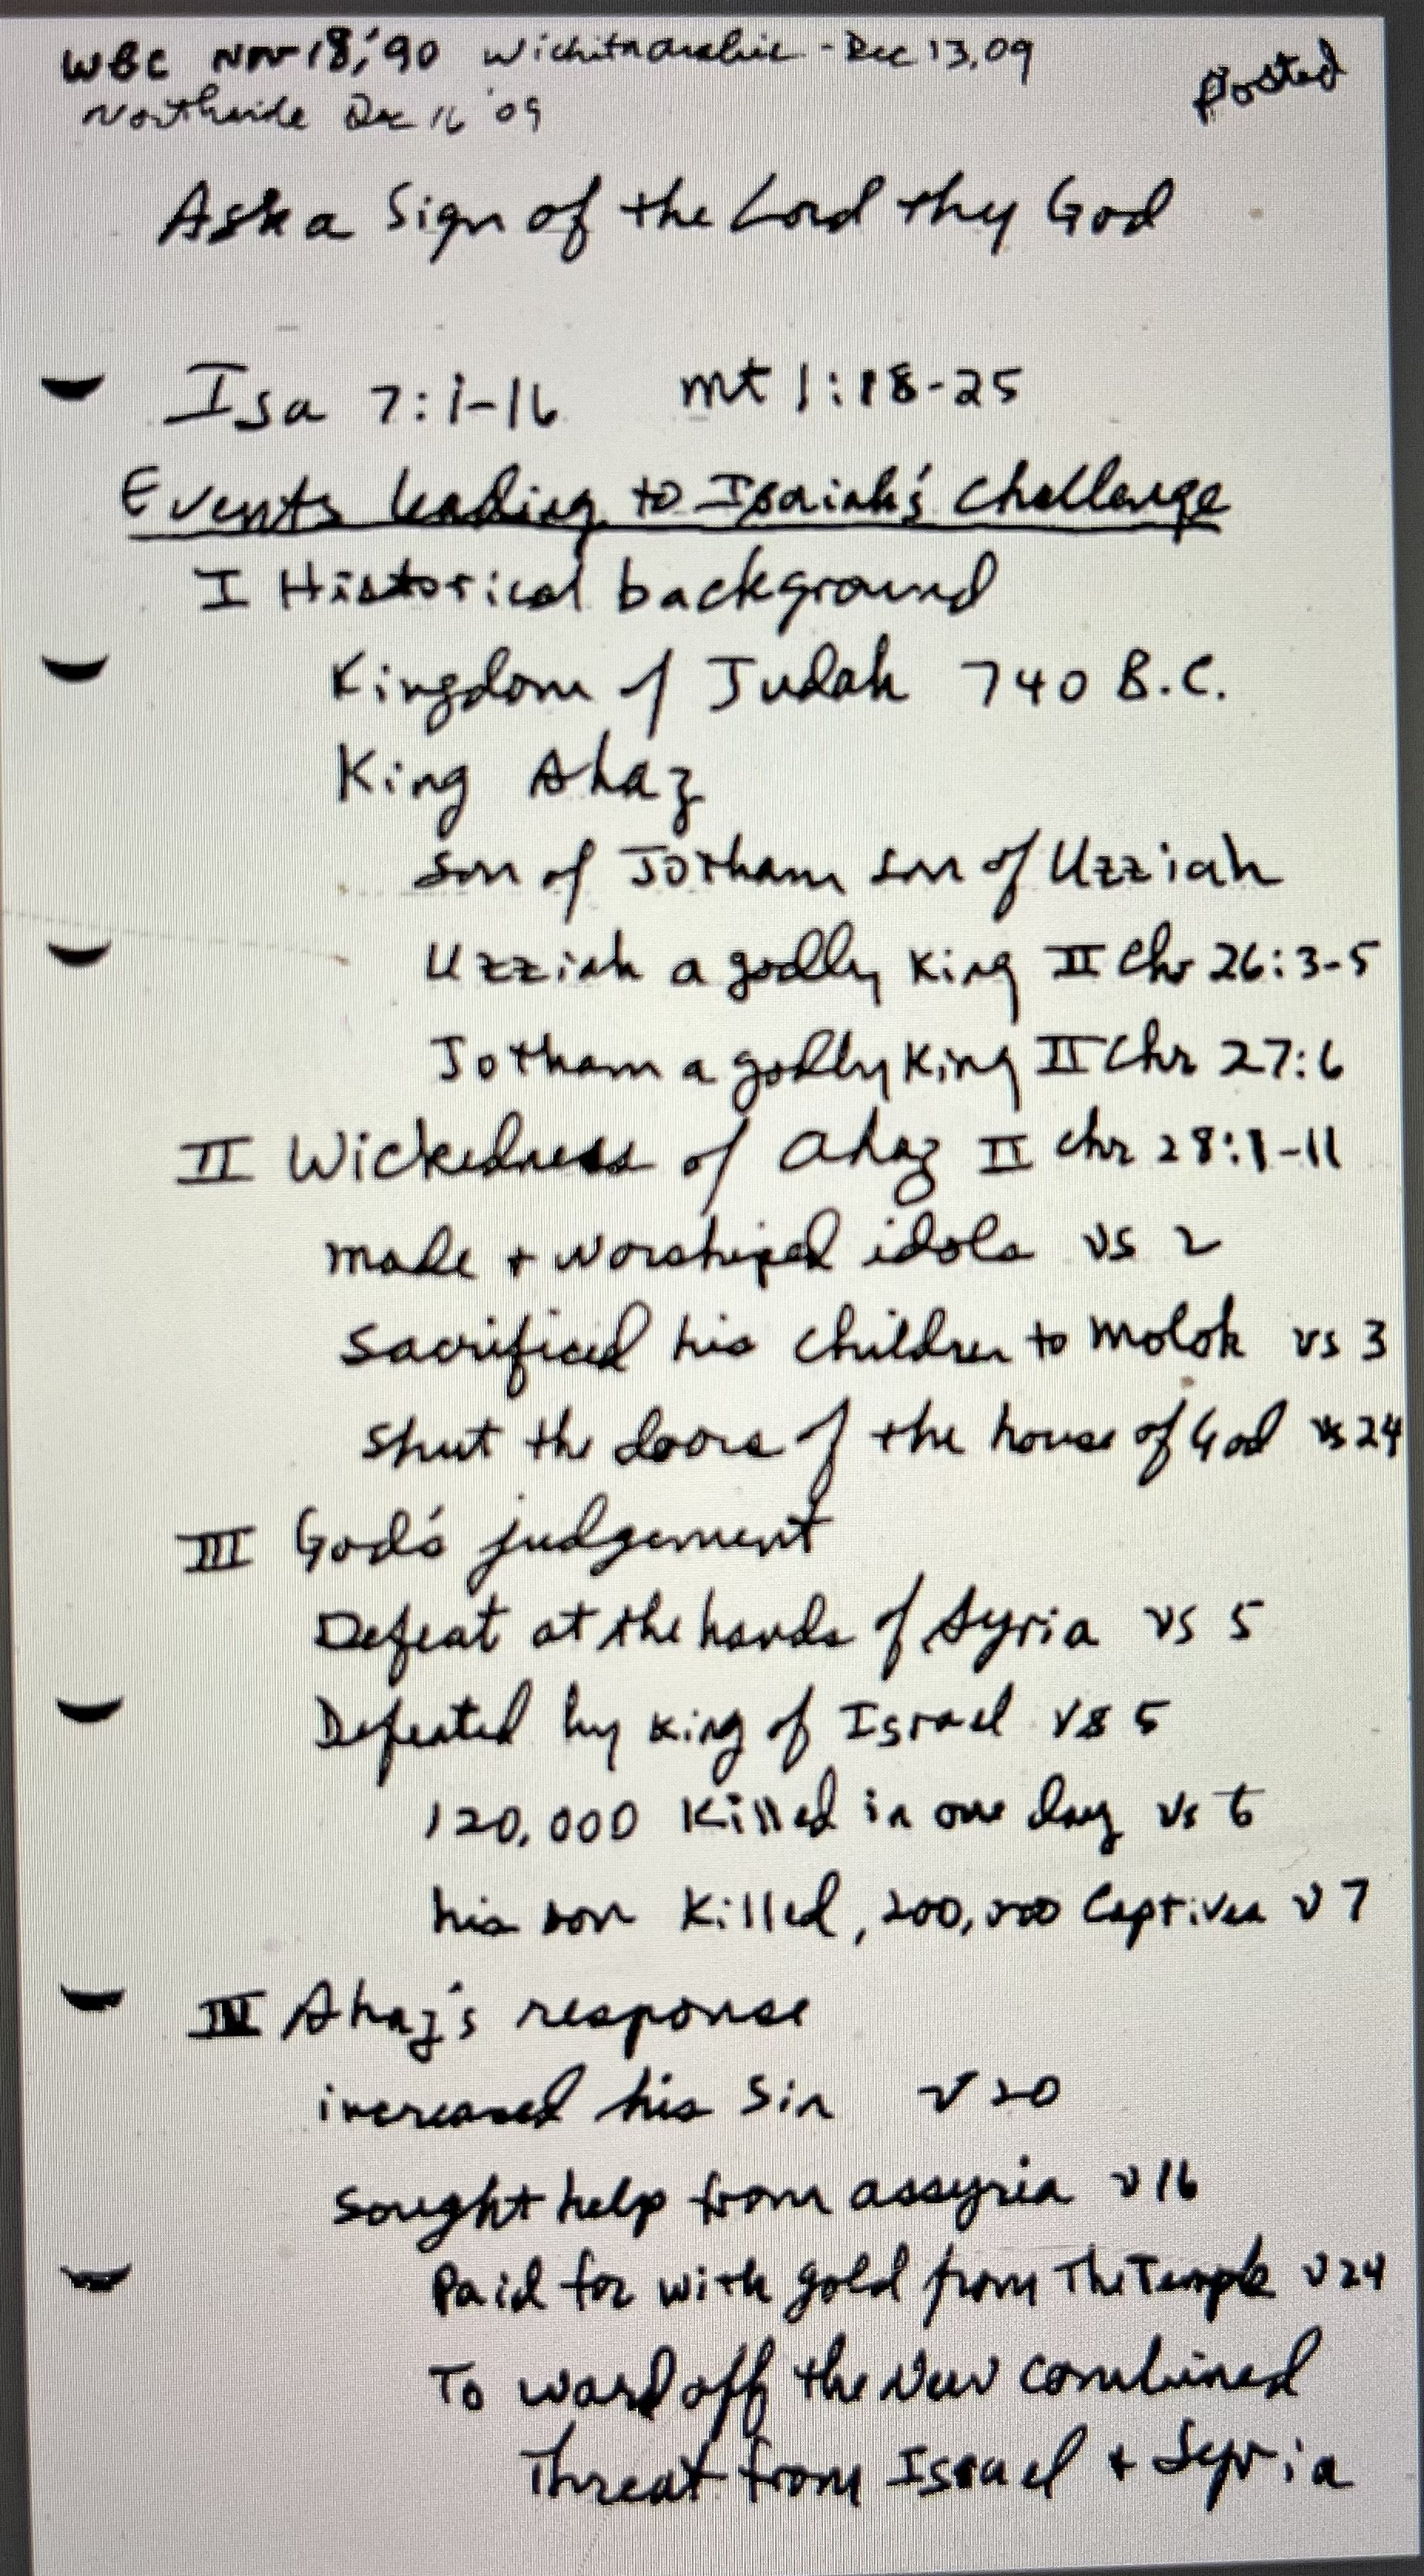 WBC Nov 18, '90 Wichita - Dec 13, 09
posted
Northside Dec 16 '09
Ask a Sign of the Lord thy God
Isa 7:1-16 mt 1:18-25
Events leading to Isaiah's challenge
I Historical background
Kingdom of Judah 740 B.C.
King Ahaz
son of Jotham son of Uzziah
Uzziah a godly King II Chr 26:3-5
Jotham a godly King II Chr 27:6
II Wickedness of Ahaz II chr 28:1-11
made + worshiped idols vs 2
Sacrificed his children to Molok vs 3
Shut the doors of the house of God vs 24
III God's judgement
Defeat at the hands of Syria vs 5
Defeated by King of Israel vs 5
120,000 Killed in one day vs 6
his son Killed, 200,000 Captives v 7
IV Ahaz's response
increased his Sin v 20
Sought help from assyria v 16
Paid for with gold from The Temple v 24
To ward off the New Combined
Threat from Israel + Syria